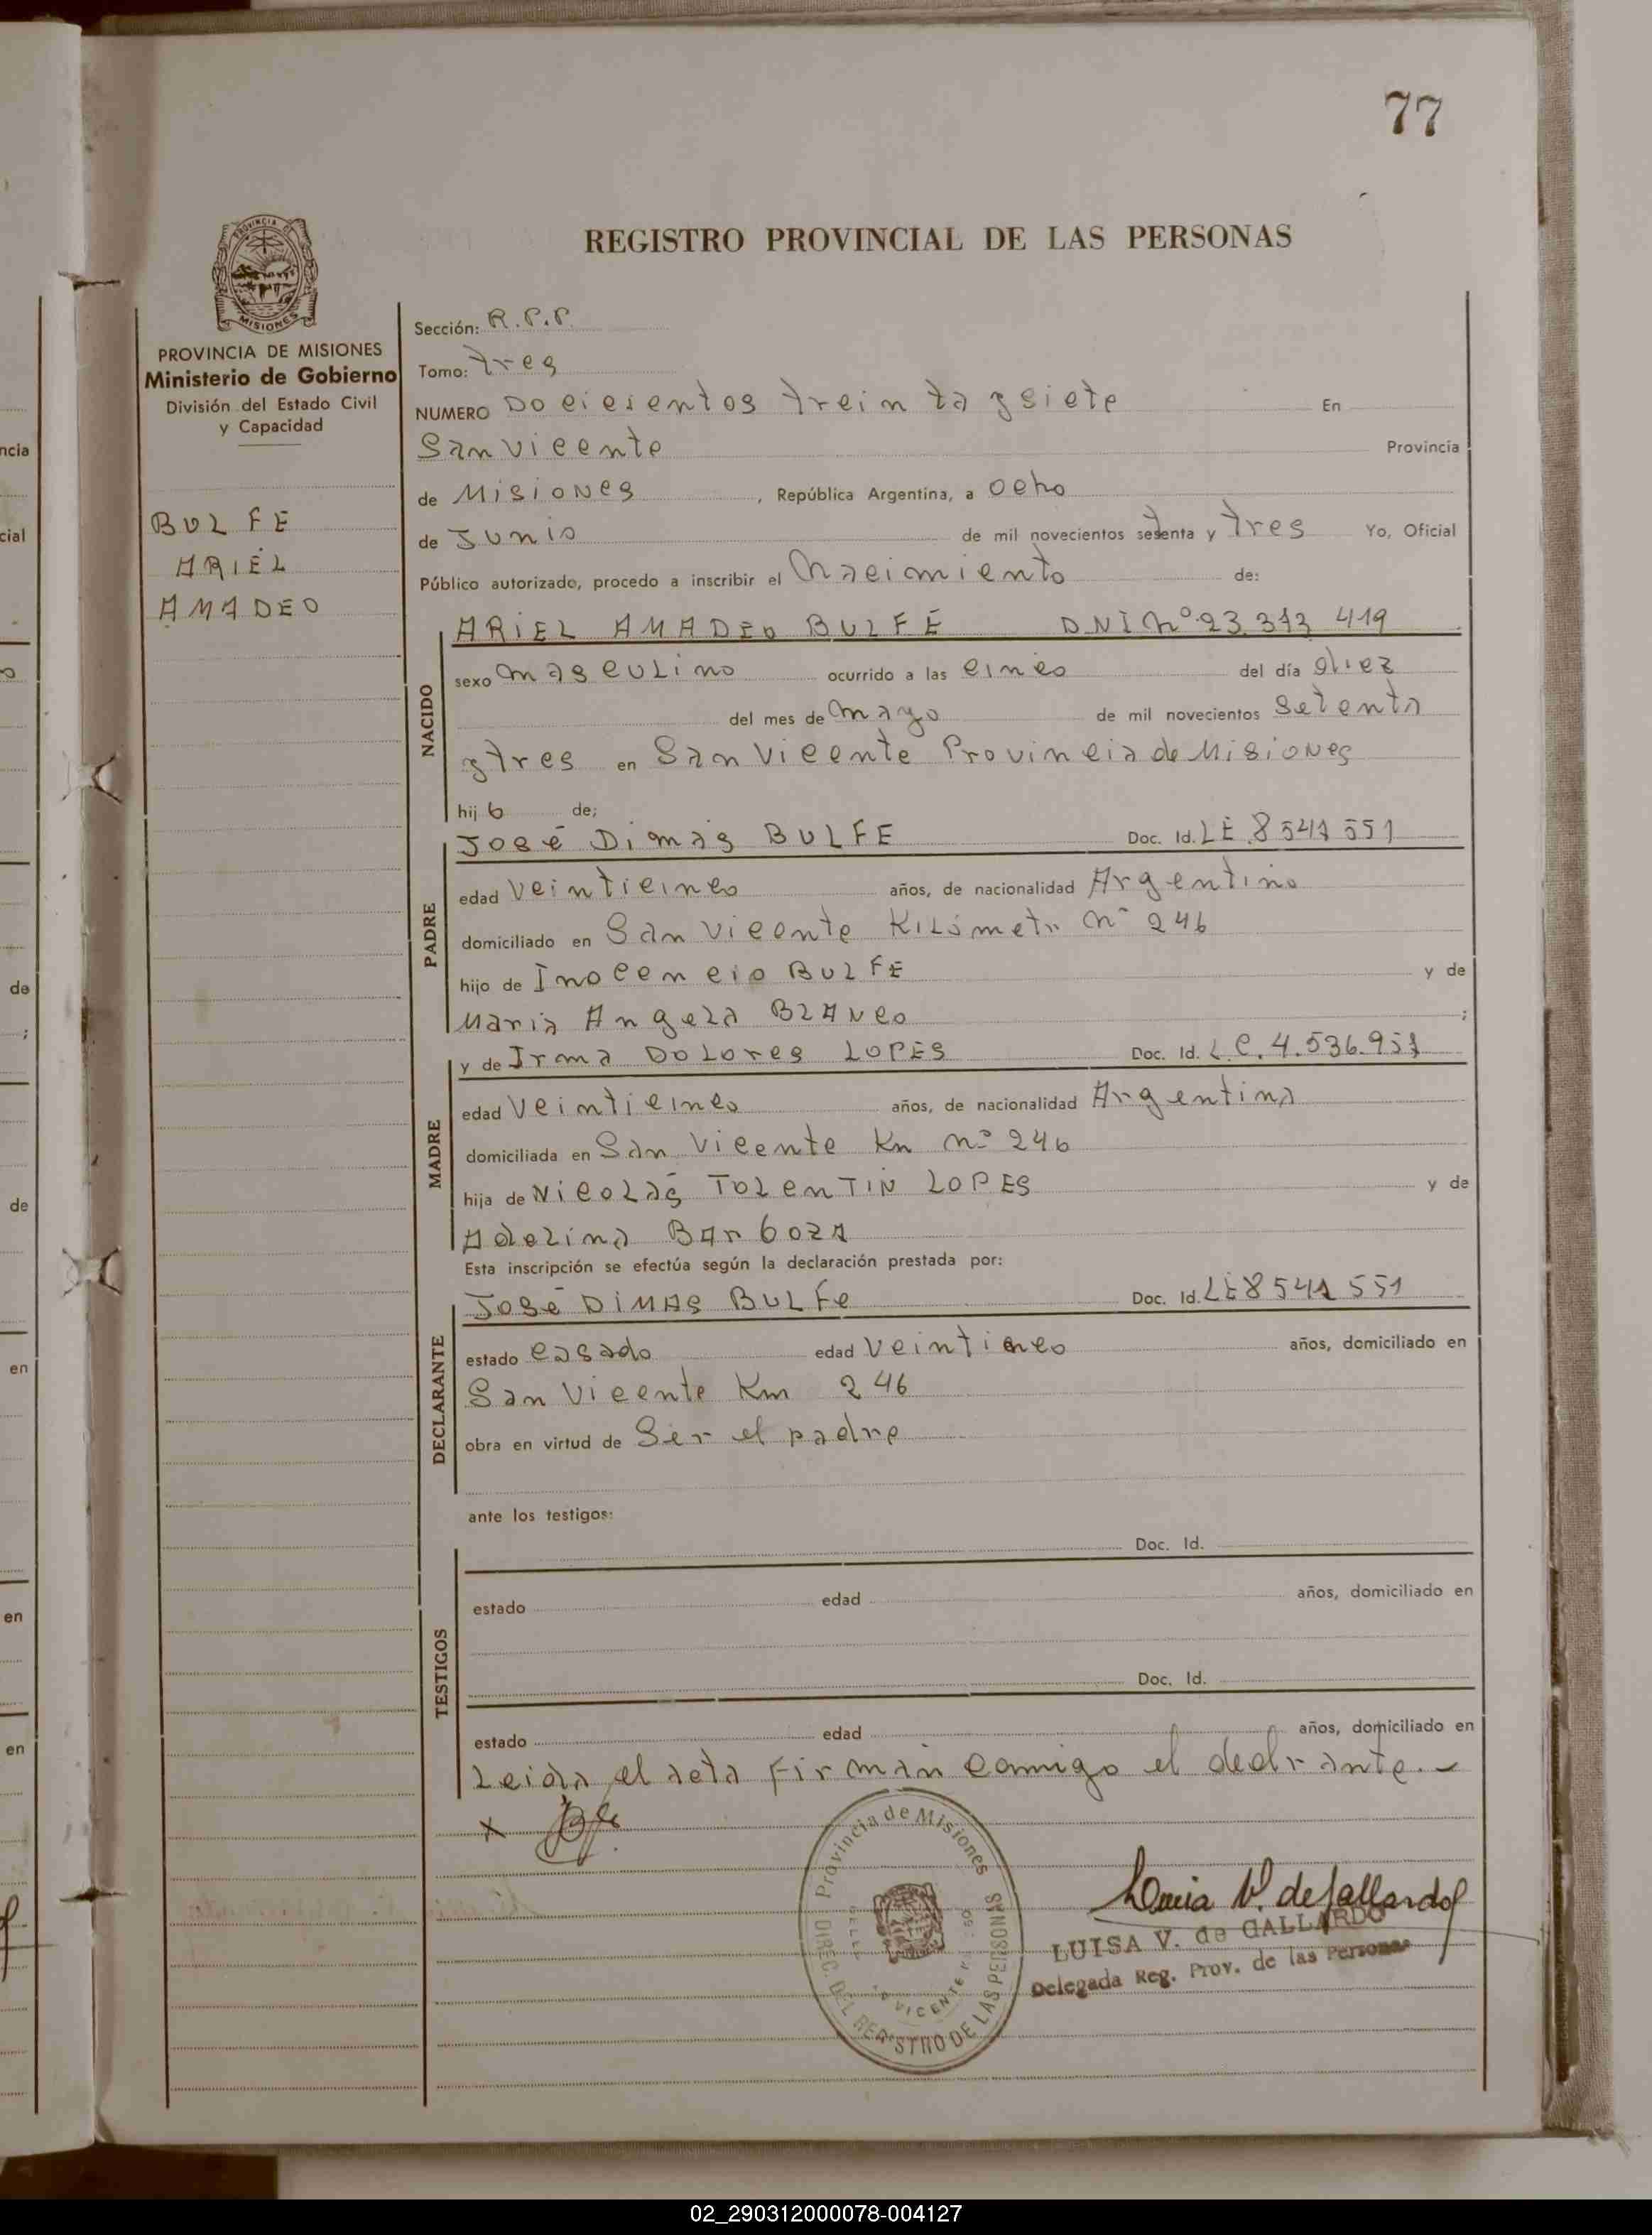 77
PROVINCIA DE
MISIONES
REGISTRO PROVINCIAL DE LAS PERSONAS
PROVINCIA DE MISIONES
Ministerio de Gobierno
División del Estado Civil
y Capacidad
BULFE
ARIEL
AMADEO
Sección: R.P.P.
Tomo: tres
NUMERO Docicientos treinta y siete En
San Vicente Provincia
de Misiones, República Argentina, a ocho
de Junio de mil novecientos setenta y tres Yo, Oficial
Público autorizado, procedo a inscribir el Nacimiento de:
NACIDO
ARIEL AMADEO BULFE DNI Nº 23.343 419
sexo masculino ocurrido a las cinco del día diez
del mes de mayo de mil novecientos setenta
y tres en San Vicente Provincia de Misiones
hijo de;
PADRE
José Dimas BULFE Doc. Id. LE 8541551
edad veinticinco años, de nacionalidad Argentino
domiciliado en San Vicente Kilómetro Nº 246
hijo de Inocencio BULFE y de
Maria Angela BLANCO;
MADRE
y de Irma DOLores LOPES Doc. Id. L.C. 4.536.951
edad Veinticinco años, de nacionalidad Argentina
domiciliada en San Vicente Km nº 246
hija de Nicolás TOLENTIN LOPES y de
Adelina Barboza
Esta inscripción se efectúa según la declaración prestada por:
DECLARANTE
José DIMAS BULFe Doc. Id. LE 8541551
estado casado edad Veinticinco años, domiciliado en
San Vicente Km 246
obra en virtud de Ser el padre
ante los testigos:
TESTIGOS
Doc. Id.
estado edad años, domiciliado en
Doc. Id.
estado edad años, domiciliado en
Leida el acta Firman conmigo el declrante.-
x
Provincia de Misiones
DIREC. DEL REGISTRO DE LAS PERSONAS
VICENTE
Luisa V. de Gallardo
LUISA V. de GALLARDO
Delegada Reg. Prov. de las Personas
ncia
cial
de
;
de
en
en
en
02_290312000078-004127